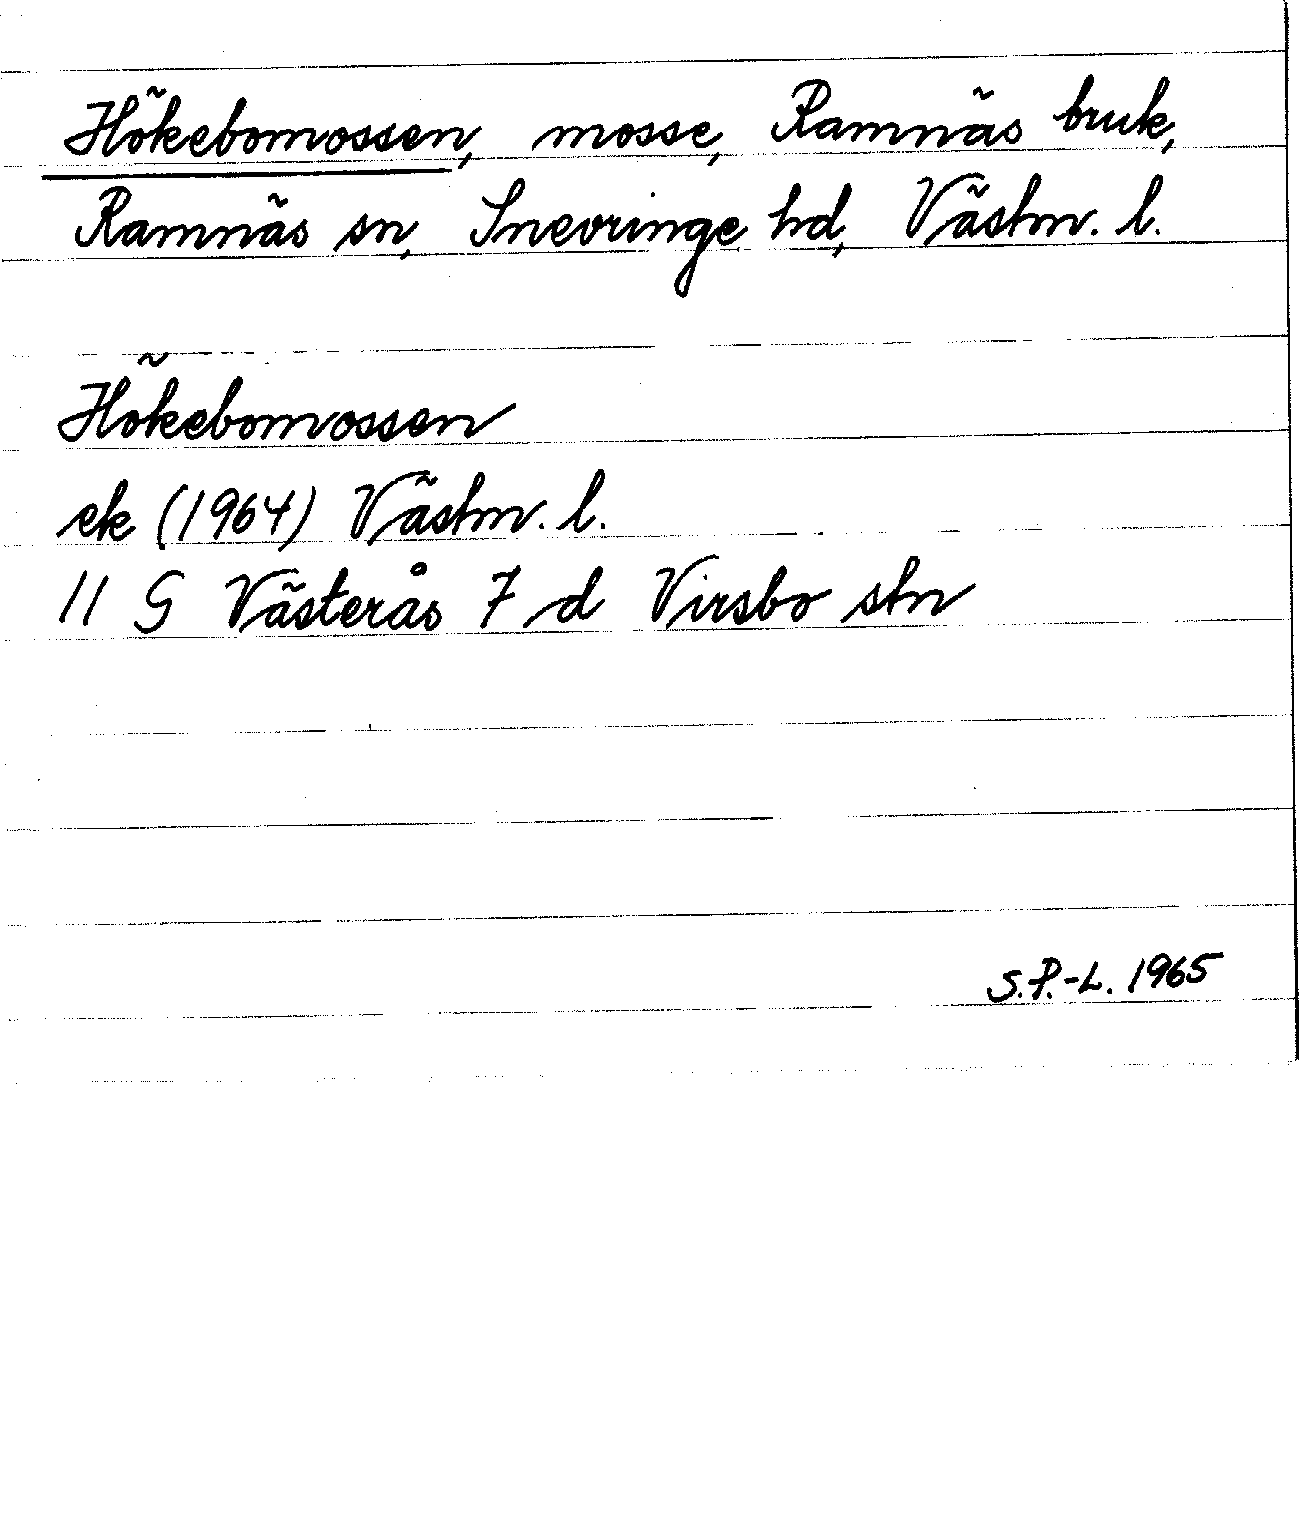 Hökebomossen, mosse, Ramnäs bruk,
Ramnäs sn, Snevringe hd, Västm. l.
Hökebomossen
ek (1964) Västm. l.
11 G Västerås 7 d Virsbo stn
S.P.-L. 1965